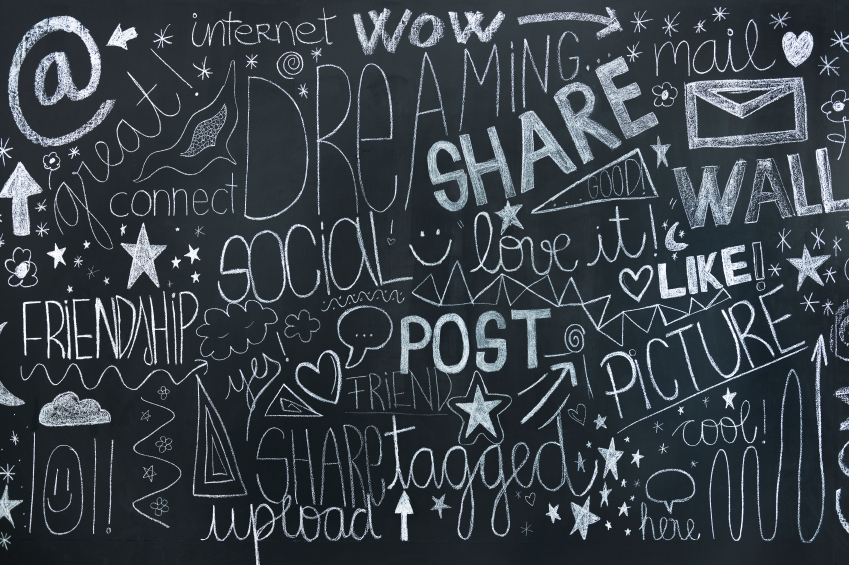 @
internet
WOW
DREAMING...
mail
great!
SHARE
connect
GOOD!
WALL
SOCIAL!
love it!
LIKE!
FRIENDSHIP
...
POST
PICTURE
yes!
FRIEND
cool!
SHARE
tagged
upload
here